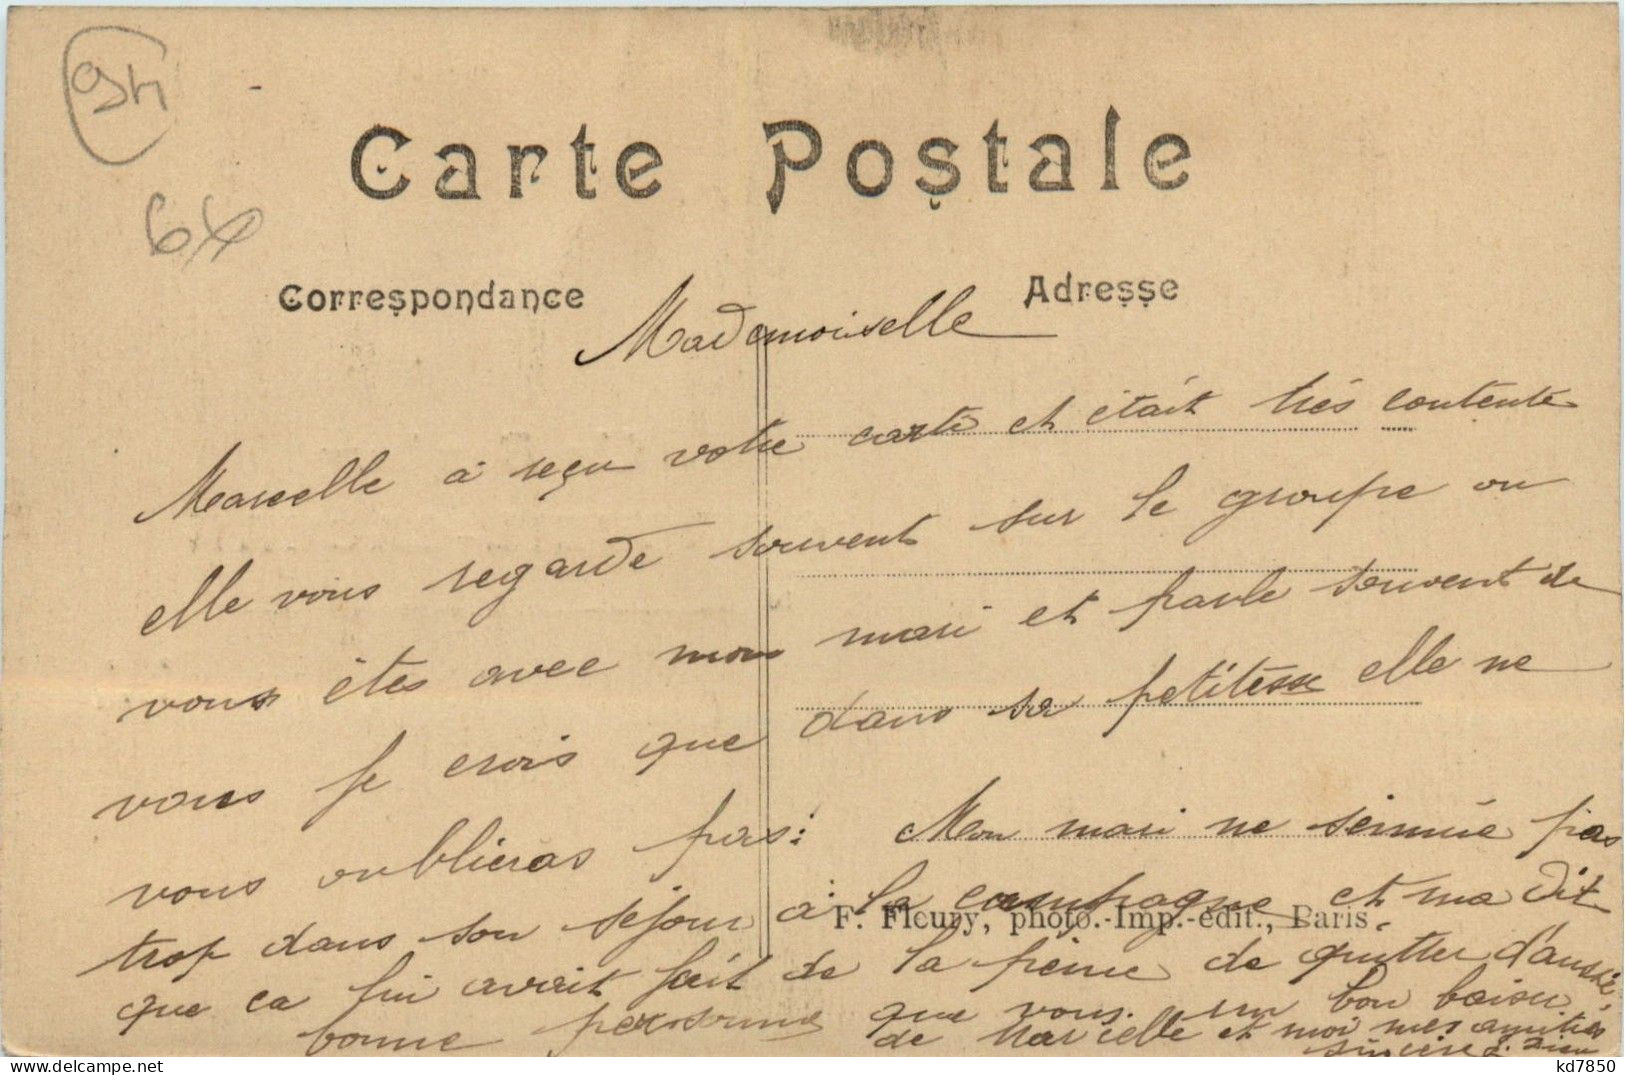 94
64
Carte Postale
Correspondance
Adresse
Mademoiselle
Marcelle à reçu votre carte et était très contente
elle vous regarde souvent sur le groupe ou
vous êtes avec mon mari et parle souvent de
vous je crois que dans sa petitesse elle ne
vous oublieras pas: Mon mari ne sennuie pas
trop dans son séjour à la campagne et ma dit
que ca lui avait fait de la peine de quitter d'aussi
bonne personne que vous. un bon baiser
de Marcelle et moi mes amitiés
sincère
F. Fleury, photo.-Imp.-édit., Paris
delcampe.net
kd7850